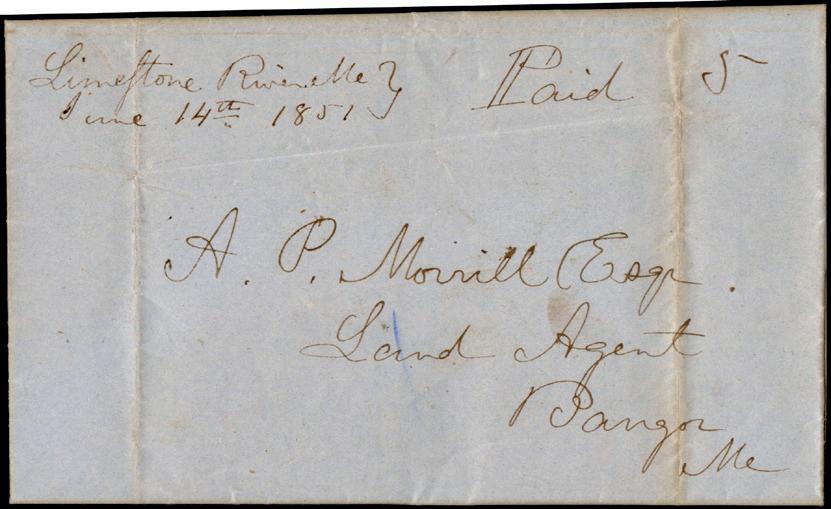 Limestone River Me } Paid 5
June 14th 1851
A. P. Morrill Esqr.
Land Agent
Bangor
Me